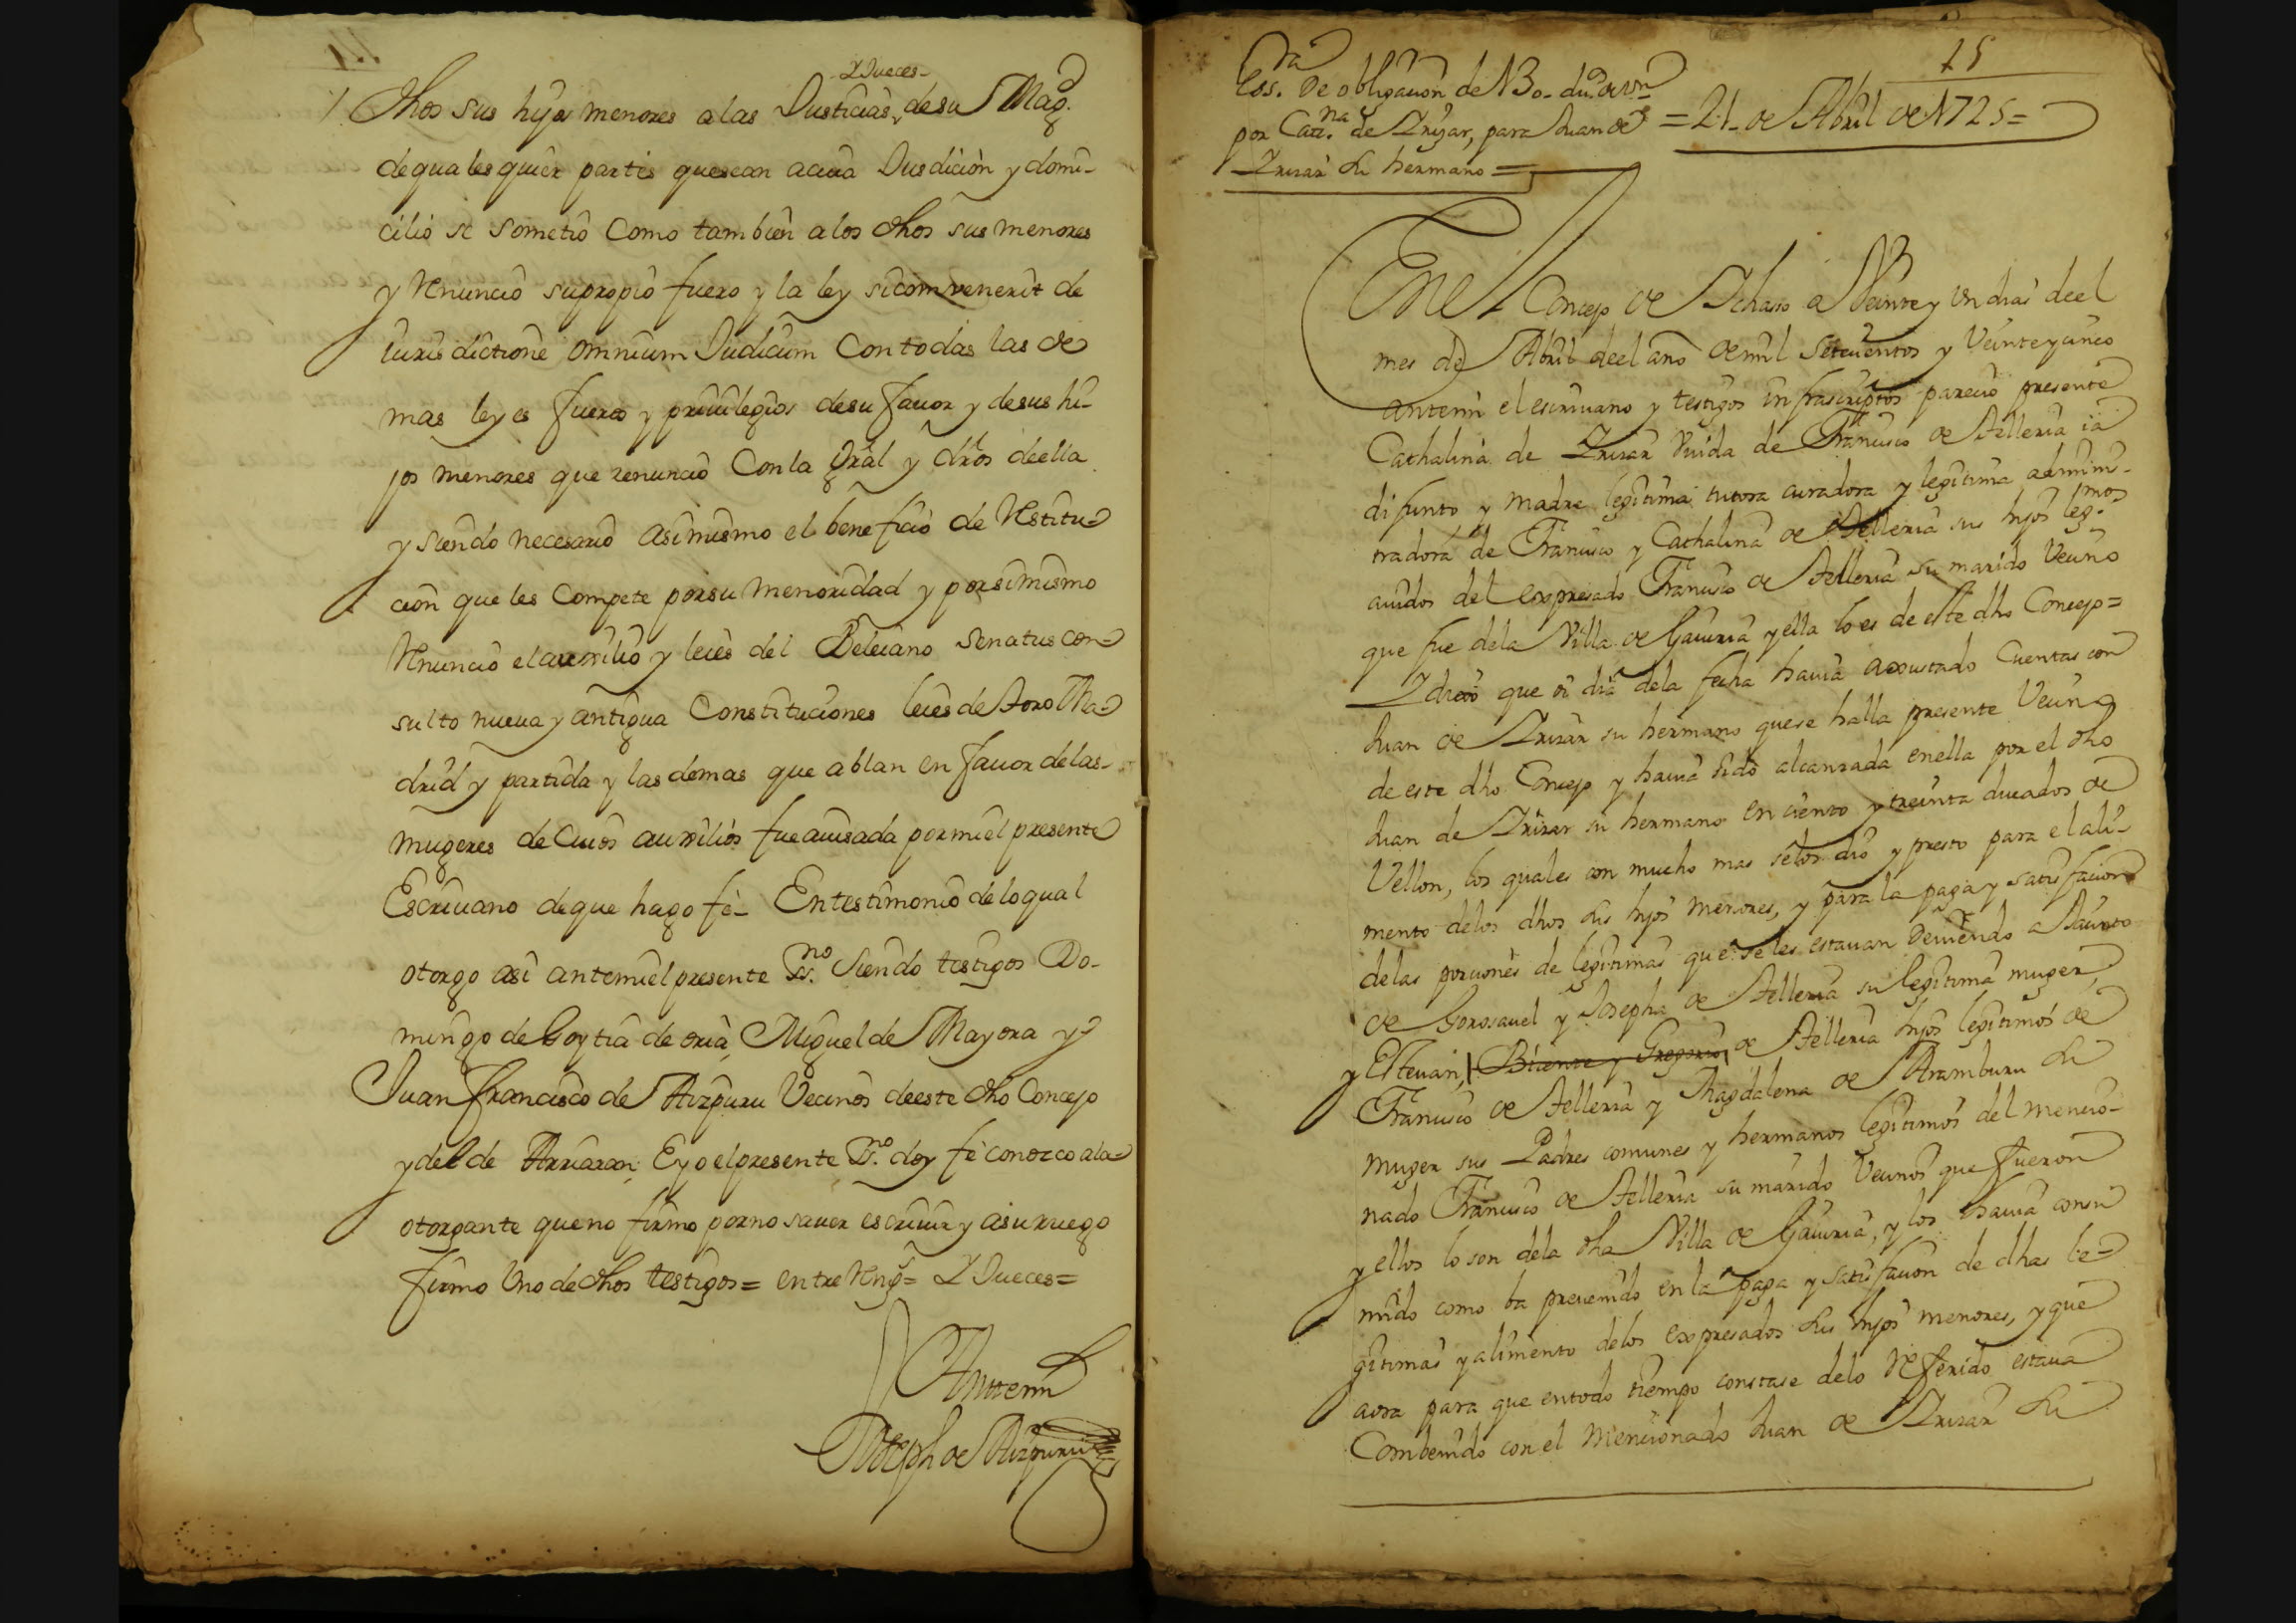 dhos sus hijos menores a las Justicias, y Jueces de su Magd.
de qualesquier partes que sean a cuia Jusdicion y domi-
cilio se sometio Como tambien a los dhos sus menores
y Renuncio su propio fuero y la ley sicomvenerit de
iurisdictione omnium Judicum Con todas las de
mas leyes fueros y privilegios de su favor y de sus hi-
jos menores que renuncio Con la Gral y dros de ella
y siendo necesario asimismo el beneficio de Restitu-
cion que les Compete por su menoridad y por simismo
Renuncio el auxilio y leies del Beleiano Senatus con-
sulto nueva y antigua Constituciones leies de Toro Ma-
drid y partida y las demas que ablan en favor de las
mugeres de Cuios auxilios fue avisada por mi el presente
Escrivano de que hago fe- En testimonio de lo qual
otorgo asi ante mi el presente Ss.no Siendo testigos Do-
mingo de Goytia de oria, Miguel de Mayora y
Juan francisco de Aizpuru Vecinos de este dho Concejo
y del de Arriaran, E yo el presente Ss.no doy fe conozco a la
otorgante que no firmo por no saver escrivir y a su ruego
firmo Uno de dhos testigos = entre Rengs = Y Jueces =
Antemi
Joseph de Aizpuru
15
Ess.ra De obligacion de 130. dus. de vn
por Cata.na de Irizar, para Juan de = 21. de Abril de 1725 =
Irizar su hermano =
En el Concejo de Ichaso a Veinte y un dias de el
mes de Abril de el año de mil Setecientos y Veinte y cinco
ante mi el escrivano y testigos infrascriptos parecio presente
Cathalina de Irizar Viuda de Francisco de Telleria ia
difunto y madre legitima tutora curadora y legitima adminis-
tradora de Francisco y Cathalina de Telleria sus hijos leg.mos
avidos del expresado Francisco de Telleria su marido Vecino
que fue de la Villa de Gaviria y ella lo es de este dho Concejo =
Y dixo que oi dia de la fecha havia axustado Cuentas con
Juan de Irizar su hermano que se halla presente Vecino
de este dho Concejo y havia sido alcanzada en ella por el dho
Juan de Irizar su hermano en ciento y treinta ducados de
Vellon, los quales con mucho mas se los dio y presto para el ali-
mento de los dhos sus hijos menores, y para la paga y satisfacion
de las porciones de legitimas que se les estavan deviendo a
de Gorosavel y Josepha de Telleria su legitima muger,
y Estevan, Bicente y Gregorio, de Telleria hijos legitimos de
Francisco de Telleria y Magdalena de Aramburu su
muger sus Padres comunes y hermanos legitimos del mencio-
nado Francisco de Telleria su marido Vecinos que fueron
y ellos lo son de la dha Villa de Gaviria, y los havia consu
mido como ba prevenido en la paga y satisfacion de dhas le-
gitimas y alimento de los expresados sus hijos menores, y que
aora para que en todo tiempo constase de lo Referido estava
Combenido con el mencionado Juan de Irizar su